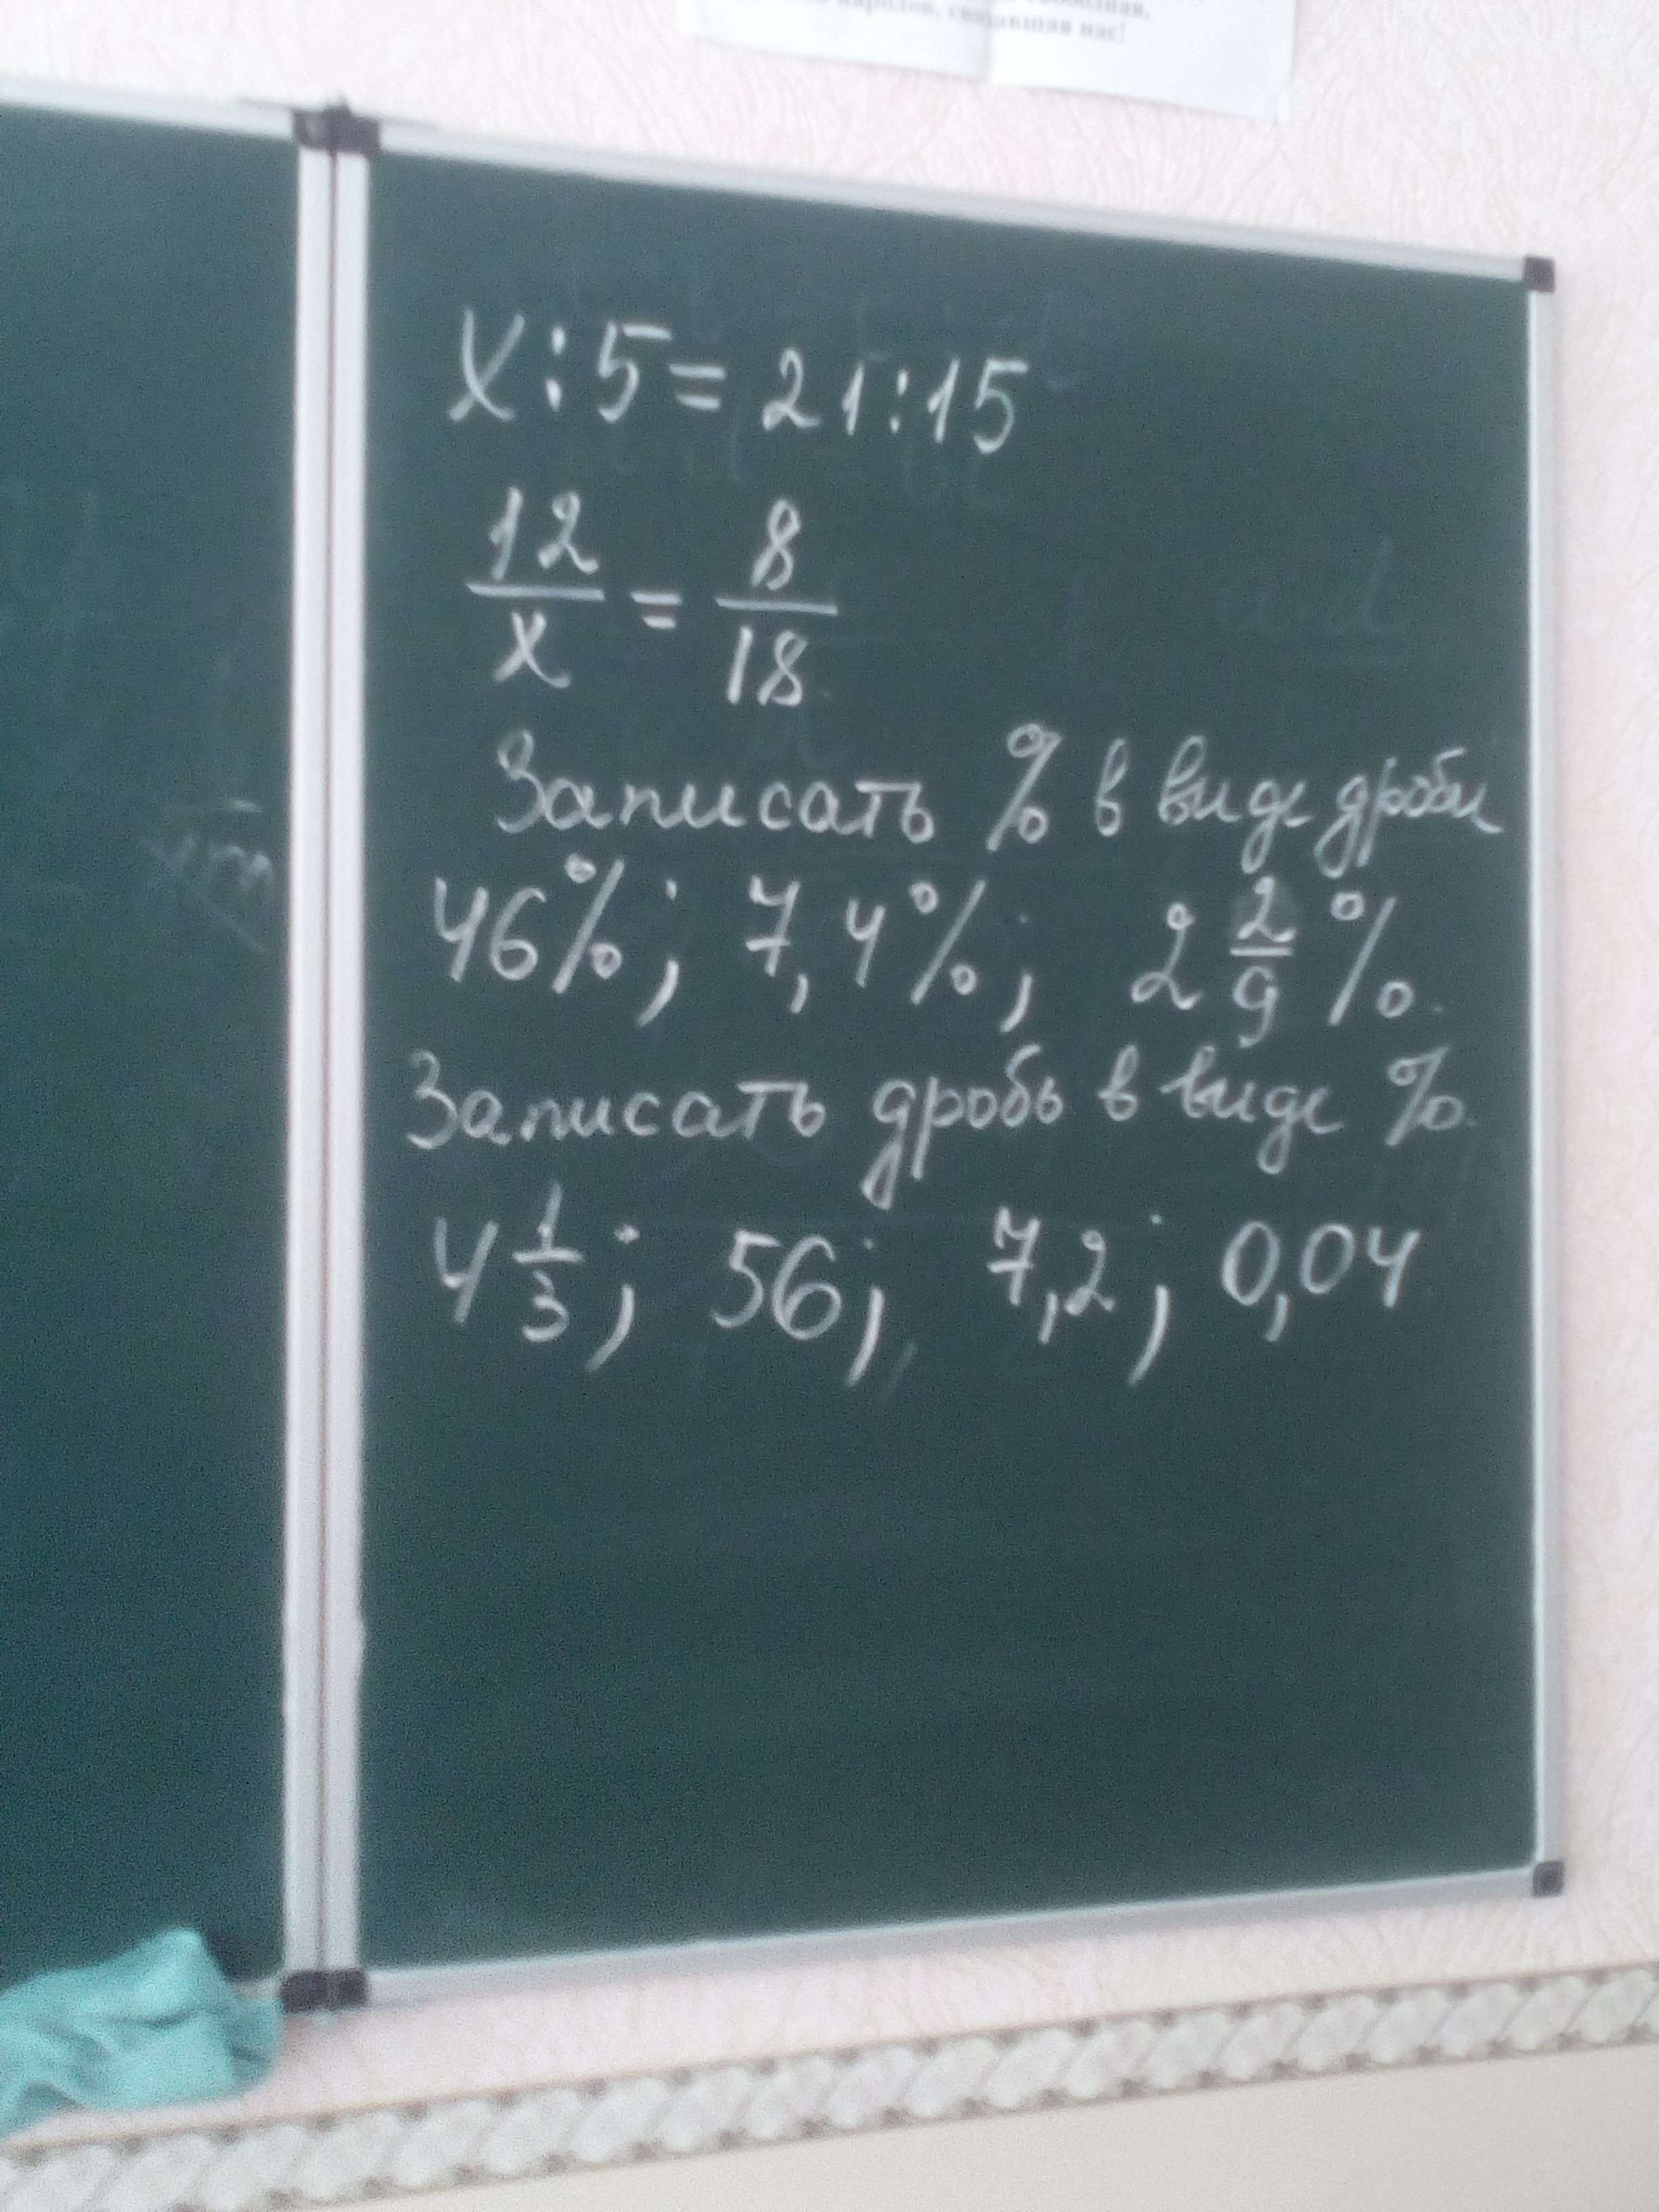 народов, связавшая нас!
x:5=21:15
12/x = 8/18
Записать % в виде дроби
46%; 7,4%; 2 2/9 %.
Записать дробь в виде %.
4 1/3; 56; 7,2; 0,04